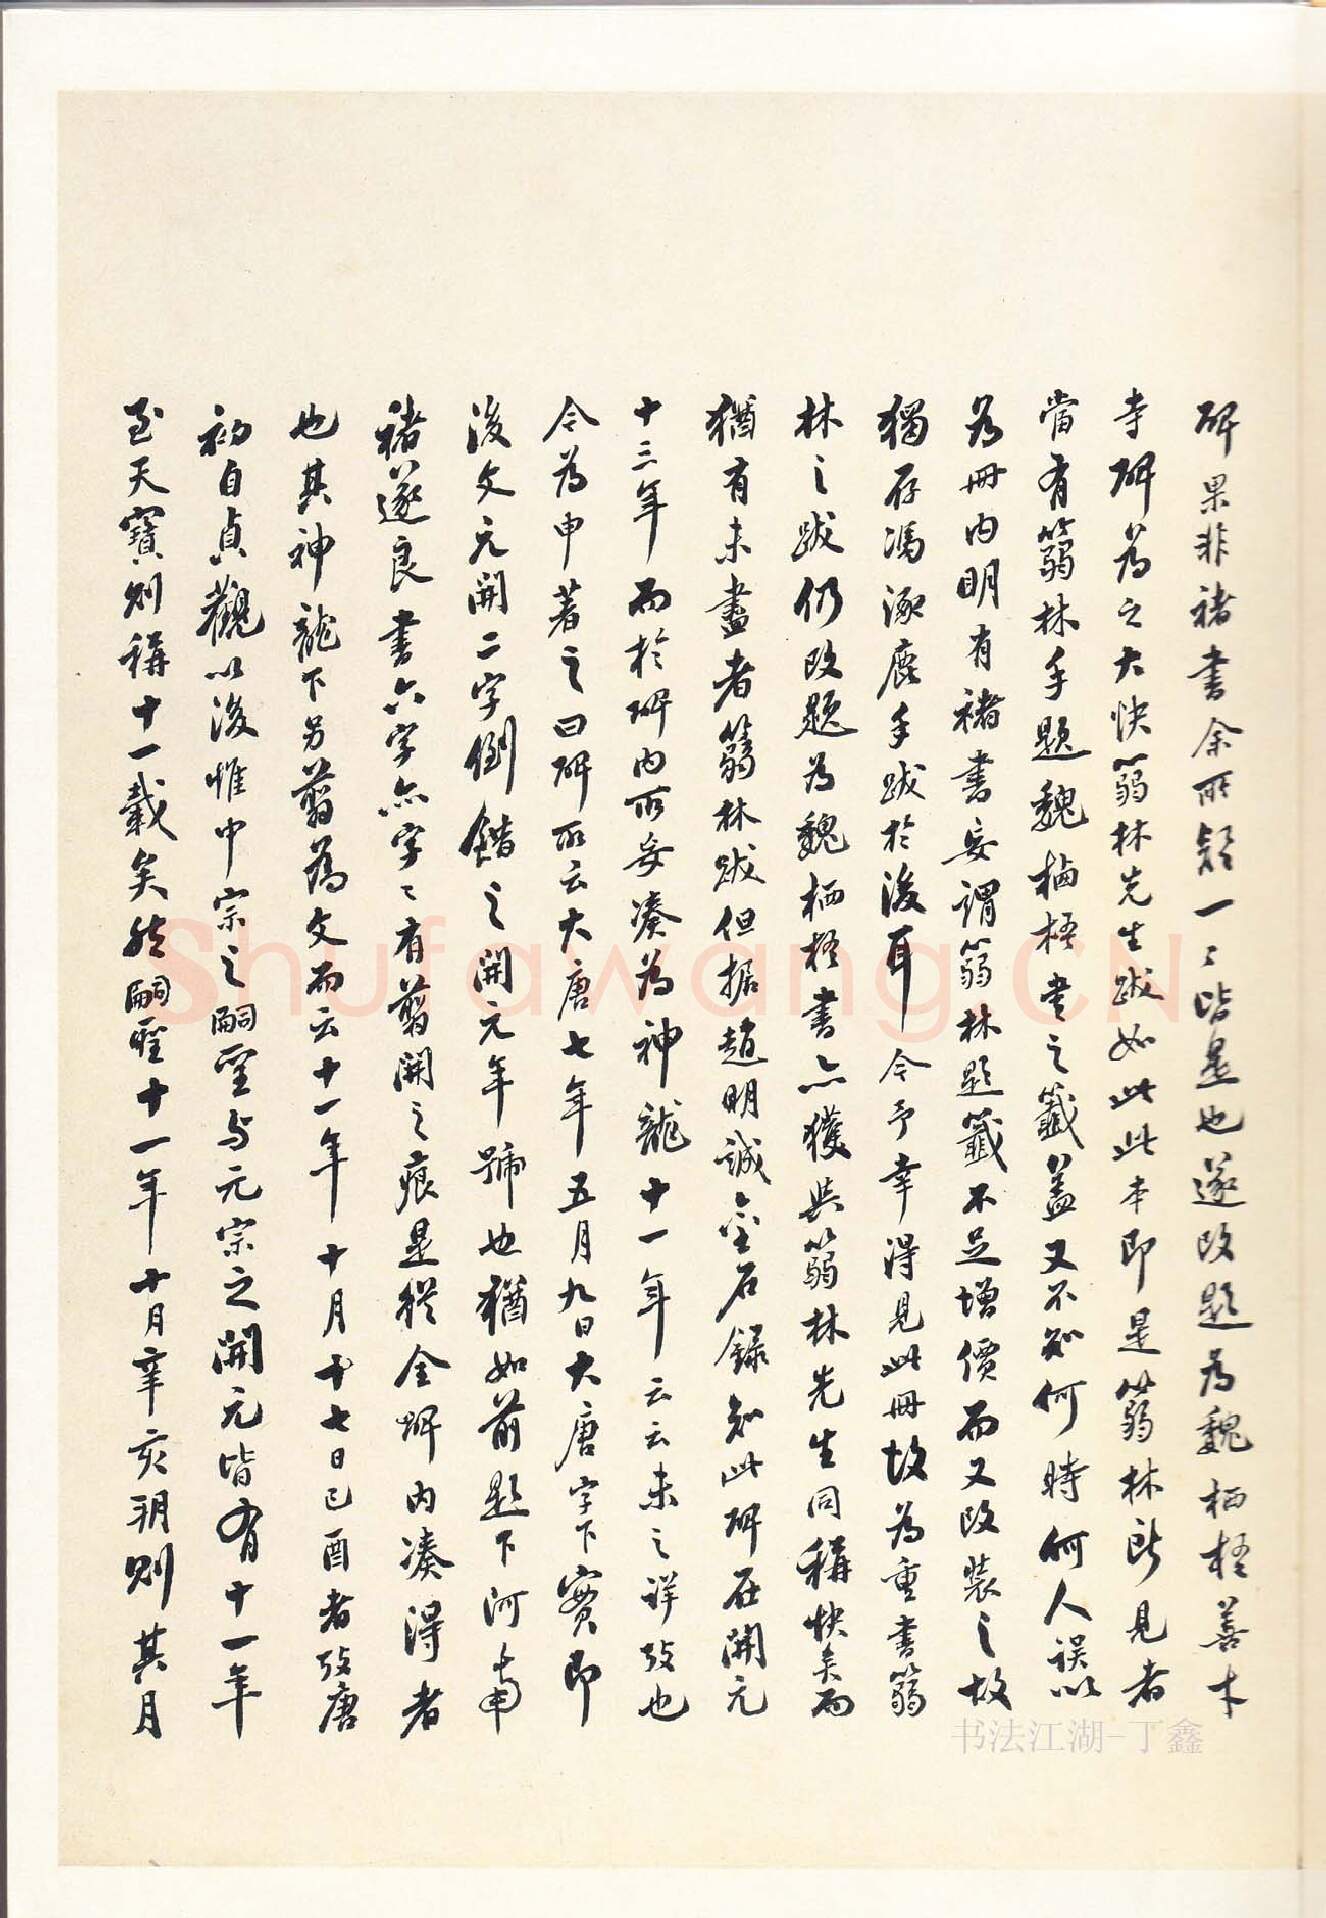 碑果非褚書余所疑一々皆是也遂改題為魏栖梧善才
寺碑為之大快篛林先生跋如此此本即是篛林所見者
當有篛林手題魏栖梧書之籤盖又不知何時何人誤以
為冊內明有褚書妄謂篛林題籤不足增價而又改裝之故
獨存馮涿鹿手跋於後耳今予幸得見此冊故為重書篛
林之跋仍改題為魏栖梧書亦獲與篛林先生同稱快矣而
猶有未盡者篛林跋但据趙明誠金石錄知此碑在開元
十三年而於碑內所妄凑為神龍十一年云云未之詳攷也
今為申著之曰碑所云大唐七年五月九日大唐字下實即
後文元開二字倒錯之開元年號也猶如前題下河南
褚遂良書六字亦字々有翦開之痕是從全碑內凑得者
也其神龍下另翦為文而云十一年十月十七日己酉者攷唐
初自貞觀以後惟中宗之嗣聖与元宗之開元皆有十一年
至天寶則稱十一載矣然嗣聖十一年十月辛亥朔則其月
Shufawang.CN
书法江湖-丁鑫